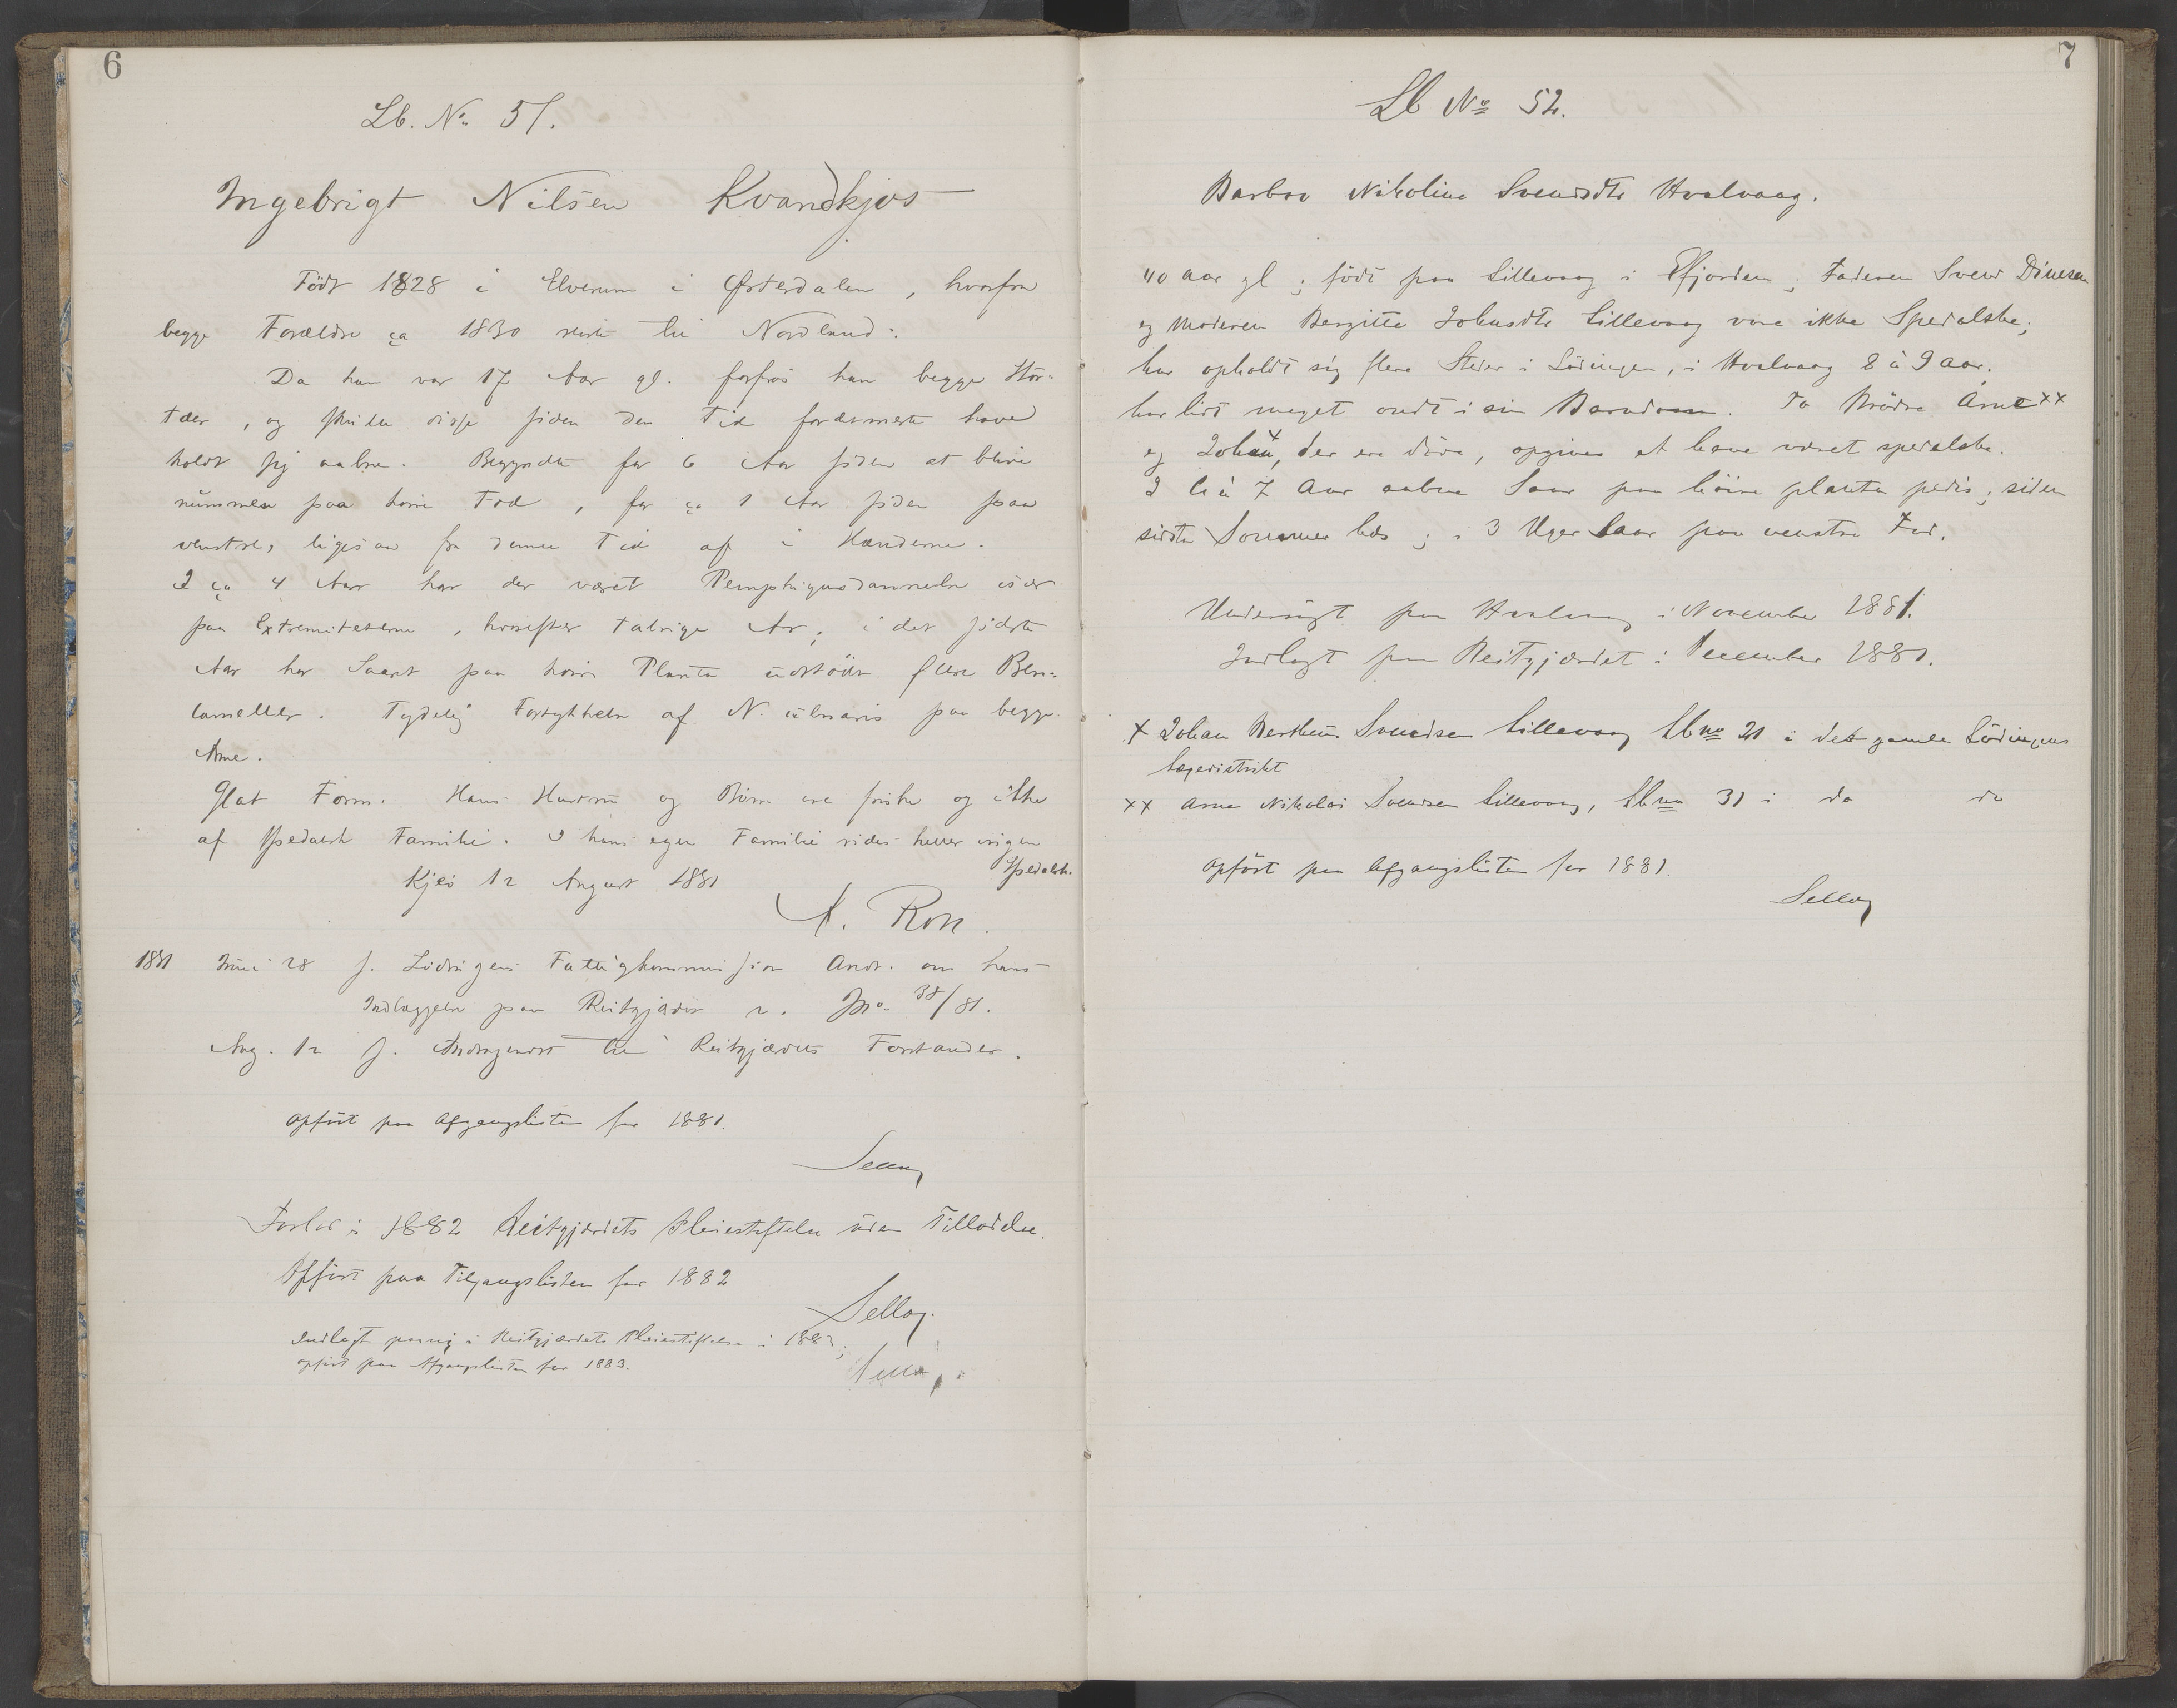 6
Lb. No. 51.
Ingebrigt Nilsen Kvandkjos
Födt 1828 i Elverum i Østerdalen, hvorfra
begge Forældre ca 1830 reiste til Nordland.
Da han var 17 Aar gl. forfrøs han begge Stor-
tæer, og skulle disse siden den Tid for det meste have
holdt sig aabne. Begyndte for 6 Aar siden at blive
nummen paa höire Fod, for ca 1 Aar siden paa
venstre, ligesaa fra denne Tid af i Hænderne.
I ca 4 Aar har der været Pemphigusdannelse især
paa Extremiteterne, hvorefter talrige Ar; i det sidste
Aar har Saaret paa höire Planta udstödt flere Ben-
lameller. Tydelig Fortykkelse af N. ulnaris paa begge
Arme.
Glat Form. Hans Hustru og Börn ere friske og ikke
af spedalsk Familie. I hans egen Familie vides heller ingen
Spedalsk.
Kjeö 12 August 1881
1881 Juni 28 f. Lödingens Fattigkommission Andr. om hans
Indlæggelse paa Reitgjærdet No. 38/81.
Aug. 12 f. Andragendet til Reitgjærdets Forstander.
Opfört paa Afgangslisten for 1881.
Forlod i 1882 Reitgjærdets Pleiestiftelse uden Tilladelse.
Opfört paa Tilgangslisten for 1882
Sellæg.
Indlagt paany i Reitgjærdets Pleiestiftelse i 1883;
opfört paa Afgangslisten for 1883.
7
Lb No 52.
Barbro Nikoline Svendsdtr Hvalvaag.
40 aar gl; födt paa Lillevaag i Efjorden; Faderen Svend Dinesen
og Moderen Bergitte Johnsdtr Lillevaag vare ikke Spedalske;
har opholdt sig flere Steder i Lödingen, i Hvalvaag 8 à 9 aar.
har lidt meget ondt i sin Barndom. To Brödre Arne xx
og Johan x, der ere döde, opgives at have været spedalske.
I 6 à 7 Aar aabne Saar paa höire planta pedis; siden
sidste Sommer hæs; i 3 Uger Saar paa venstre Fod.
Undersögt paa Hvalvaag i November 1881.
Indlagt paa Reitgjærdet i December 1881.
x Johan Svendsen Lillevaag Lb no 21 i det gamle Lödingens
Lægedistrikt
xx Arne Nikolai Svendsen Lillevaag, Lb no 31 i do do
Opfört paa Afgangslisten for 1881.
Sellæg